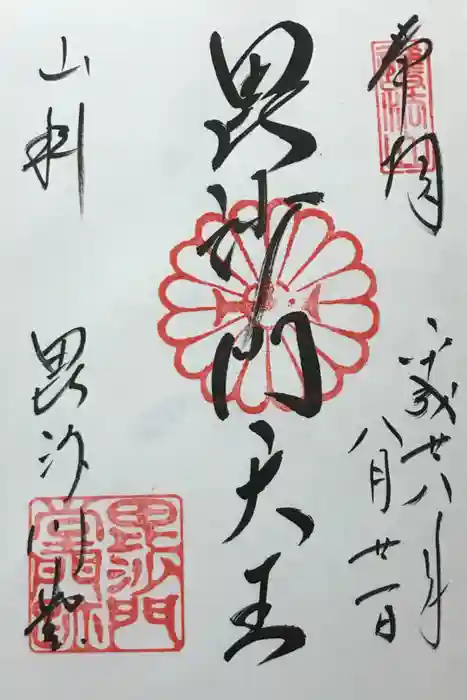 奉拝
平成廿八年
八月廿一日
毘沙門天王
山科
毘沙門堂
護法山
毘沙門
堂門跡